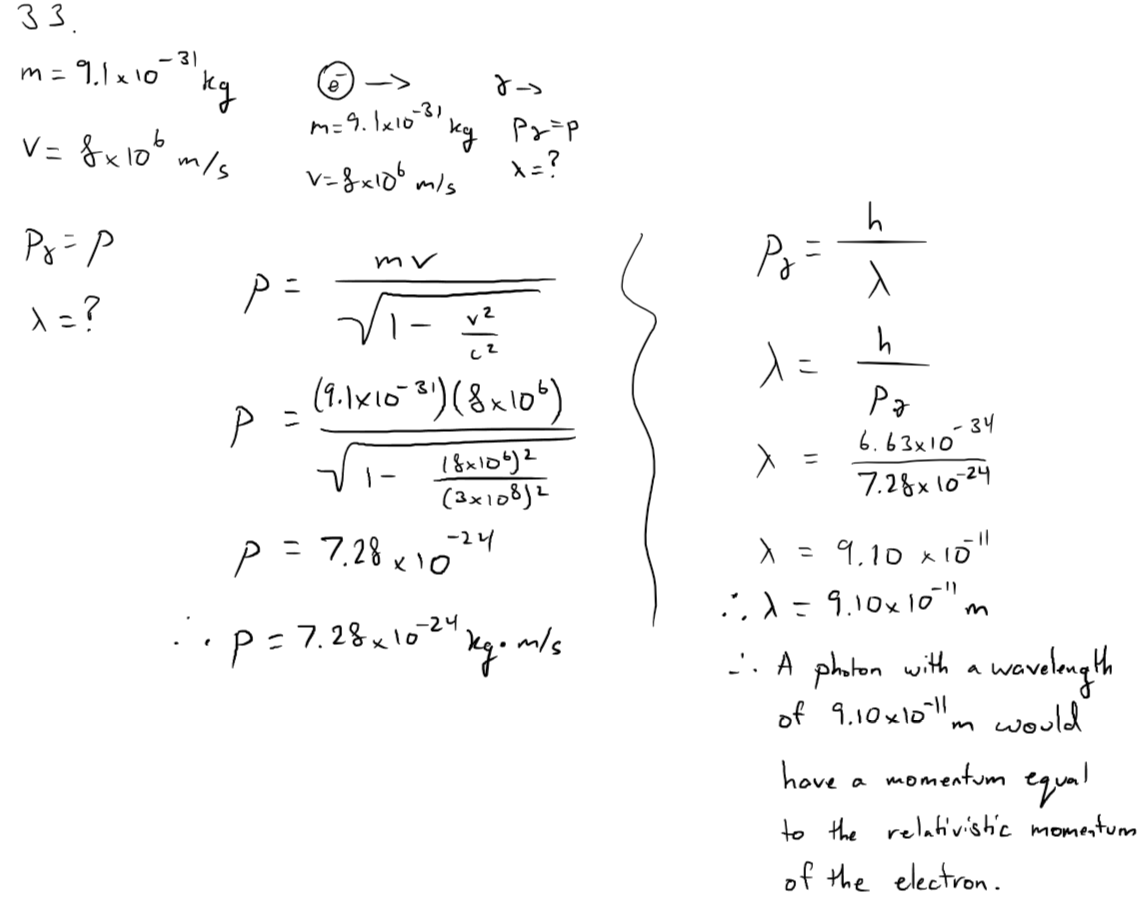 33.
m = 9.1 x 10⁻³¹ kg
v = 8 x 10⁶ m/s
Pγ = p
λ = ?
e⁻ →
m = 9.1x10⁻³¹ kg
v = 8x10⁶ m/s
γ →
Pγ = p
λ = ?
p = mv / √(1 - v²/c²)
p = (9.1x10⁻³¹)(8x10⁶) / √(1 - (8x10⁶)²/(3x10⁸)²)
p = 7.28 x 10⁻²⁴
∴ p = 7.28 x 10⁻²⁴ kg·m/s
Pγ = h / λ
λ = h / Pγ
λ = 6.63x10⁻³⁴ / 7.28x10⁻²⁴
λ = 9.10 x 10⁻¹¹
∴ λ = 9.10x10⁻¹¹ m
∴ A photon with a wavelength
of 9.10x10⁻¹¹ m would
have a momentum equal
to the relativistic momentum
of the electron.